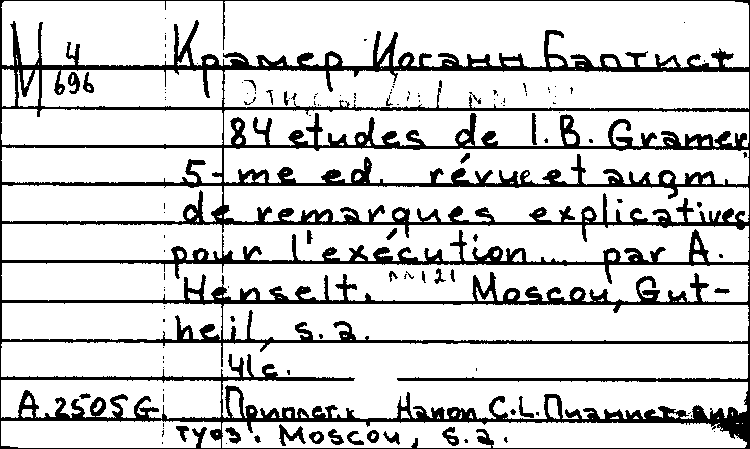 М 4/696
Крамер, Иоганн Баптист
Этюды
84 etudes de I.B. Gramer,
5-me ed. révue et augm.
de remarques explicatives
pour l'exécution... par A.
Henselt. Moscou, Gut-
heil, s.a.
41 с.
А.2505 G. Приплет. к Напоп, C.L. Пианист-вир
туоз. Moscou, s.a.